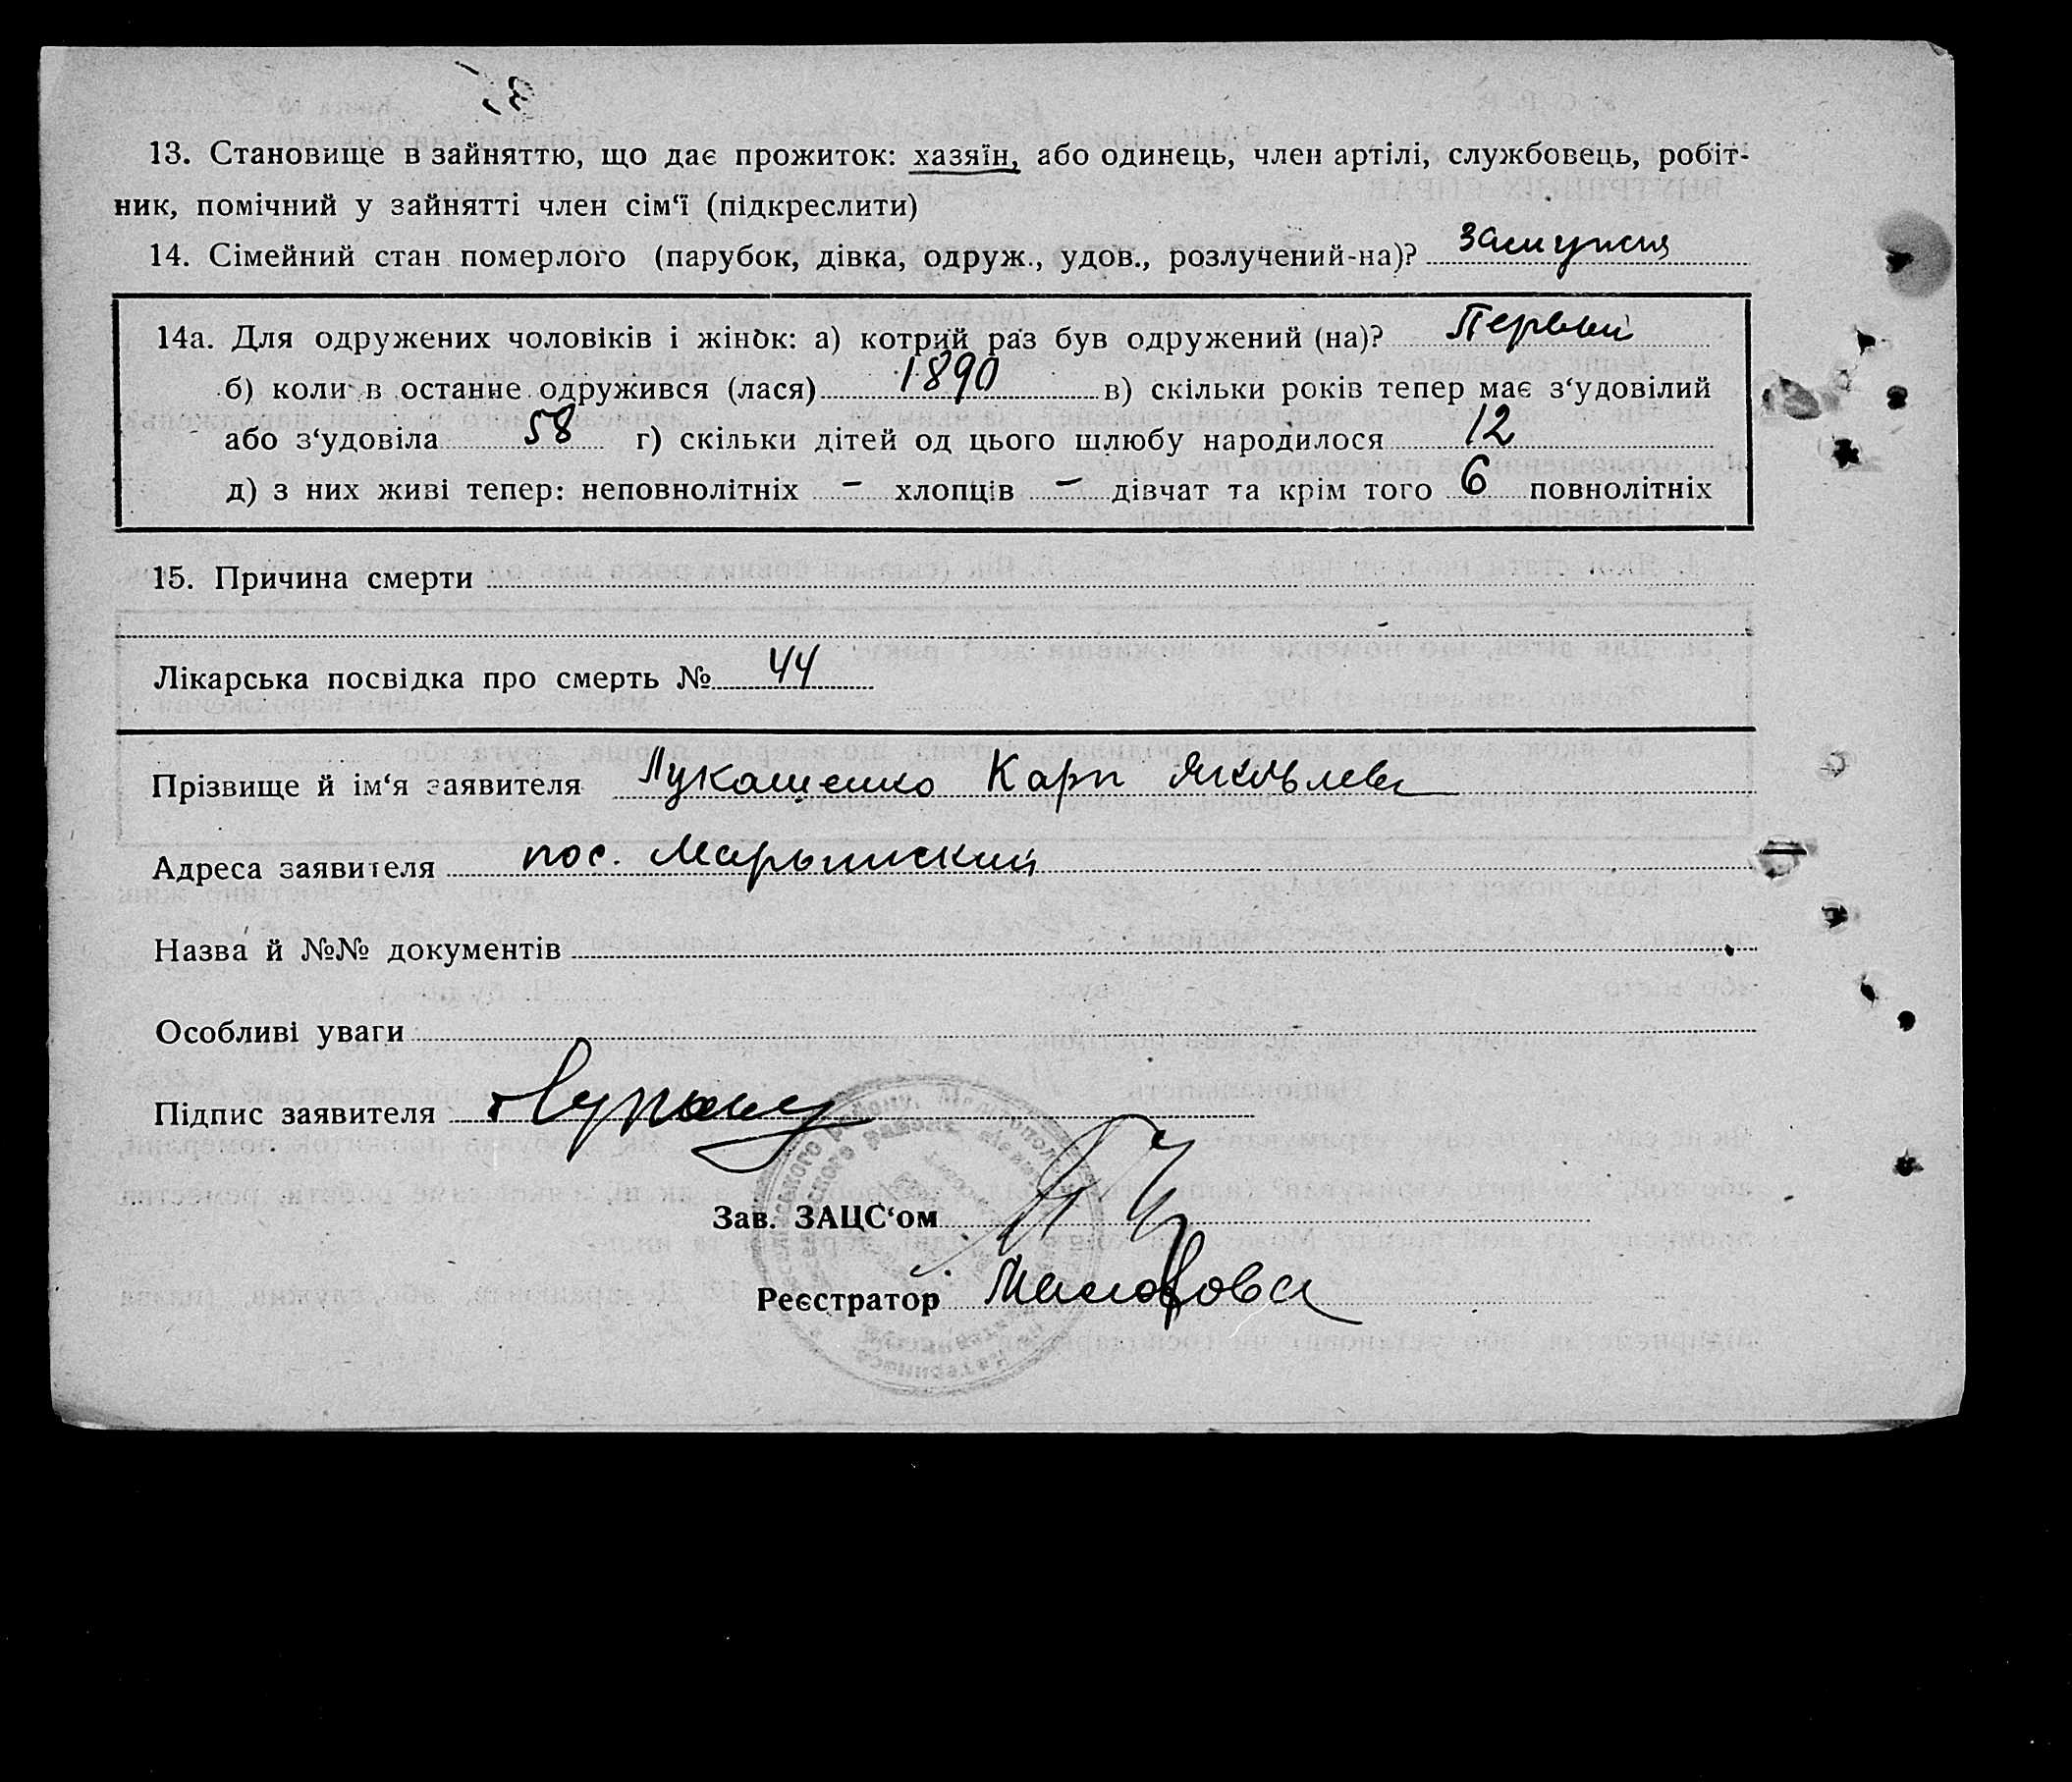 13. Становище в зайняттю, що дає прожиток: хазяїн, або одинець, член артілі, службовець, робіт-
ник, помічний у зайнятті член сім‘ї (підкреслити)
14. Сімейний стан померлого (парубок, дівка, одруж., удов., розлучений-на)? замужня
14а. Для одружених чоловіків і жінок: а) котрий раз був одружений (на)? Первый
б) коли в останне одружився (лася) 1890 в) скільки років тепер має з‘удовілий
або з‘удовіла 58 г) скільки дітей од цього шлюбу народилося 12
д) з них живі тепер: неповнолітніх – хлопців – дівчат та крім того 6 повнолітніх
15. Причина смерти
Лікарська посвідка про смерть № 44
Прізвище й ім‘я заявителя Лукашенко Карп Яковлев
Адреса заявителя пос. Марьинский
Назва й №№ документів
Особливі уваги
Підпис заявителя
Зав. ЗАЦС‘ом
Реєстратор